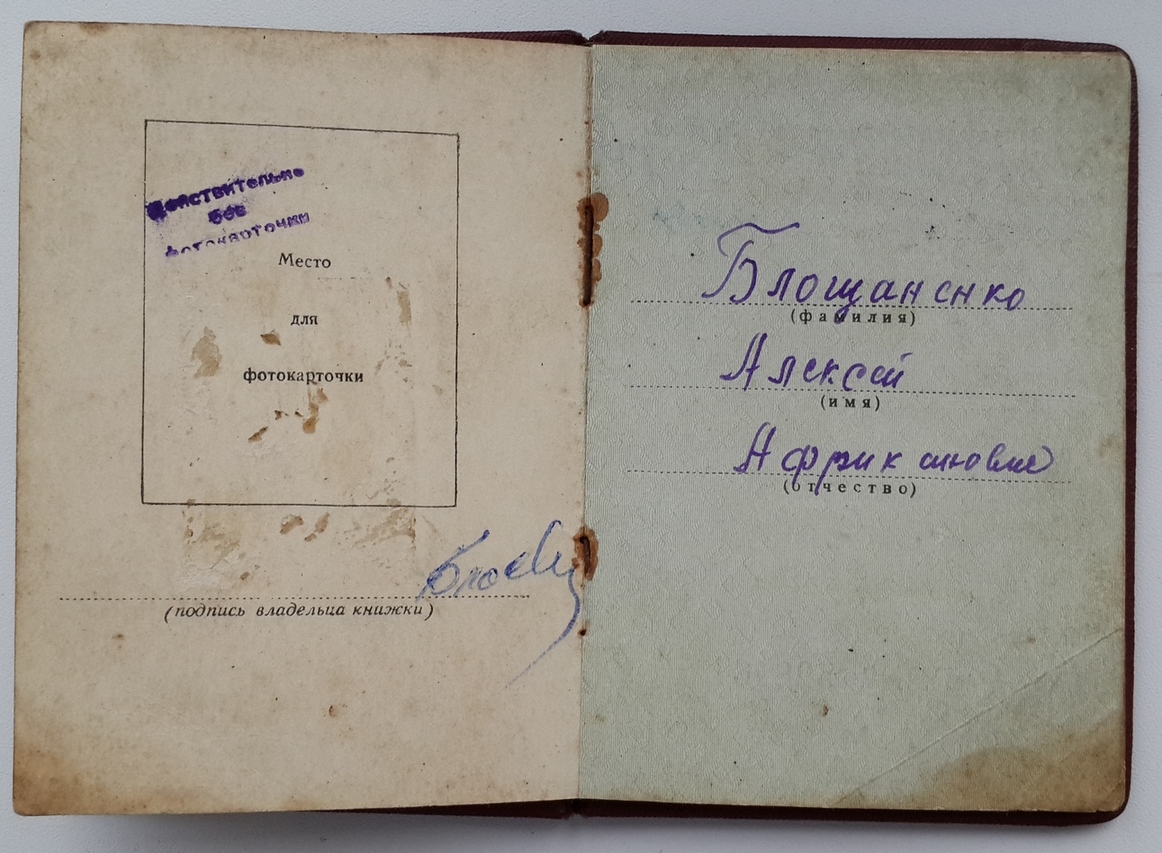 Действительно
без
фотокарточки
Место
для
фотокарточки
(подпись владельца книжки)
Блощаненко
(фамилия)
Алексей
(имя)
Африканович
(отчество)